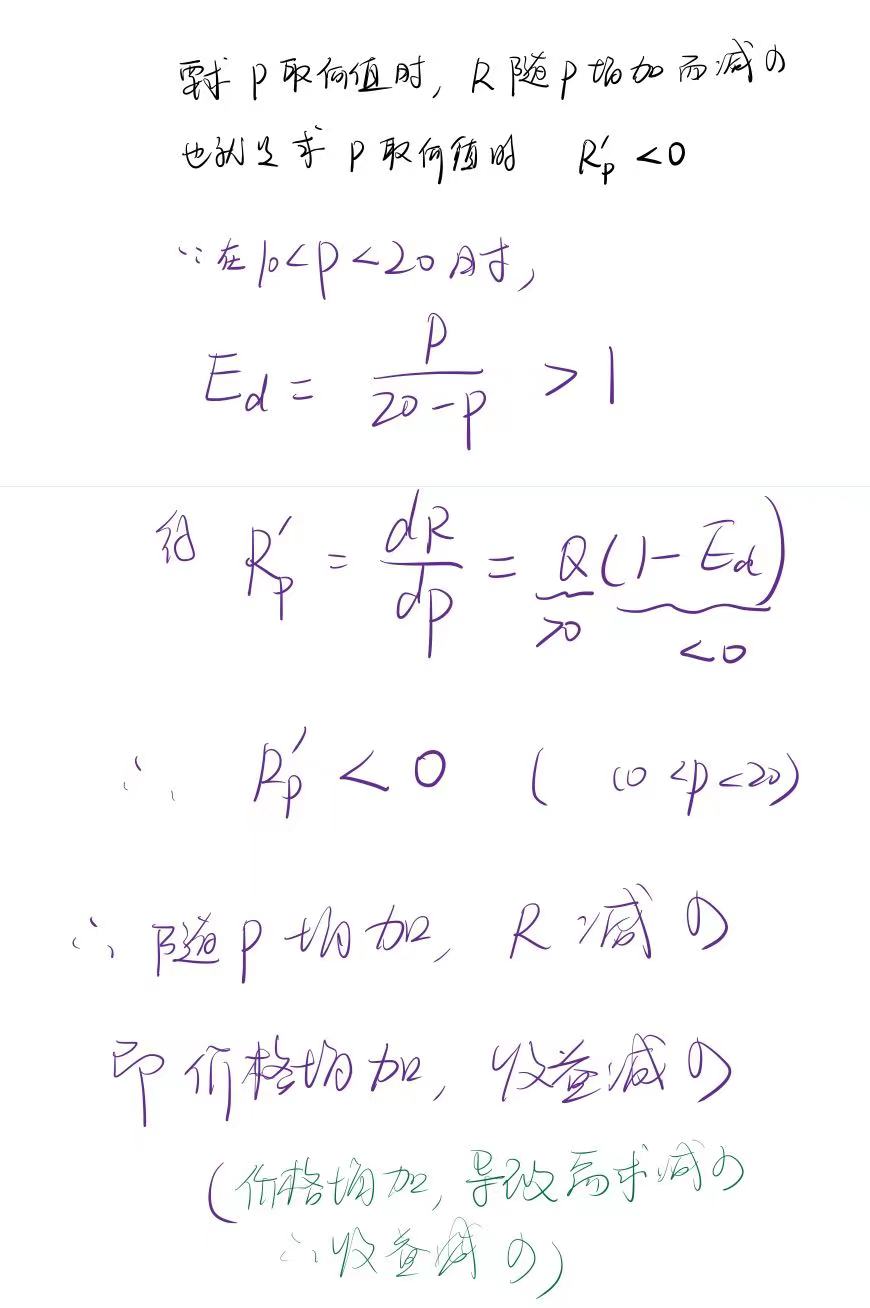 要求 P 取何值时, R 随 P 增加而减少
也就是求 P 取何值时 R'_P < 0
∵在 10<P<20 时,
E_d = P/(20-P) > 1
R'_P = dR/dP = Q(1-E_d)
>0 <0
∴ R'_P < 0 ( 10 <P<20)
∴ 随 P 增加, R 减少
即价格增加, 收益减少
(价格增加, 导致需求减少
∴收益减少)